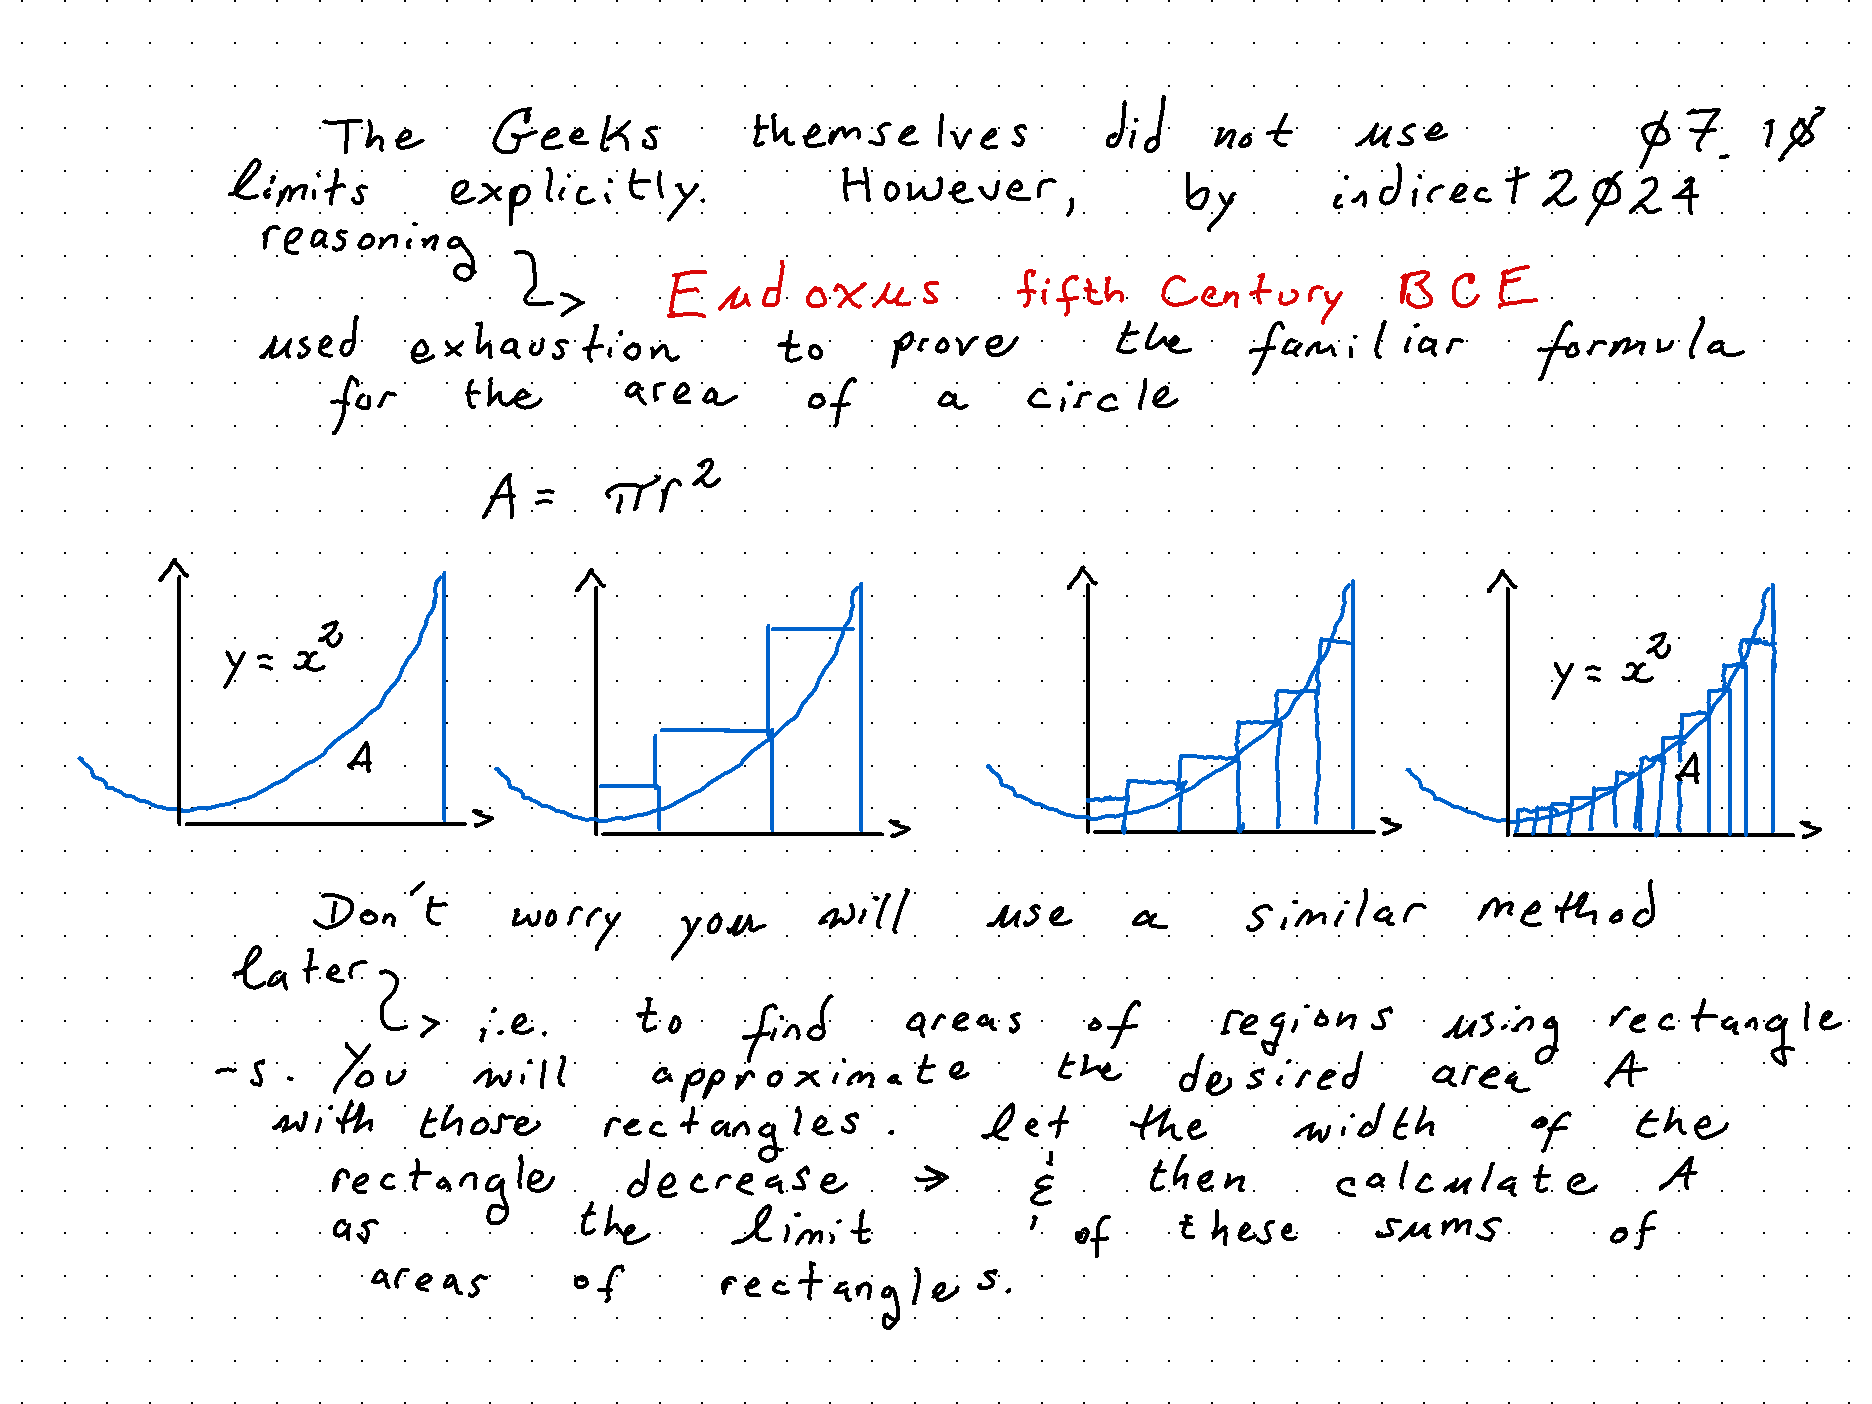 The Geeks themselves did not use 07.10
limits explicitly. However, by indirect 2024
reasoning
Eudoxus fifth Century BCE
used exhaustion to prove the familiar formula
for the area of a circle
A = πr²
y = x²
A
y = x²
A
Don't worry you will use a similar method
later
i.e. to find areas of regions using rectangle
-s. You will approximate the desired area A
with those rectangles. let the width of the
rectangle decrease → & then calculate A
as the limit of these sums of
areas of rectangles.